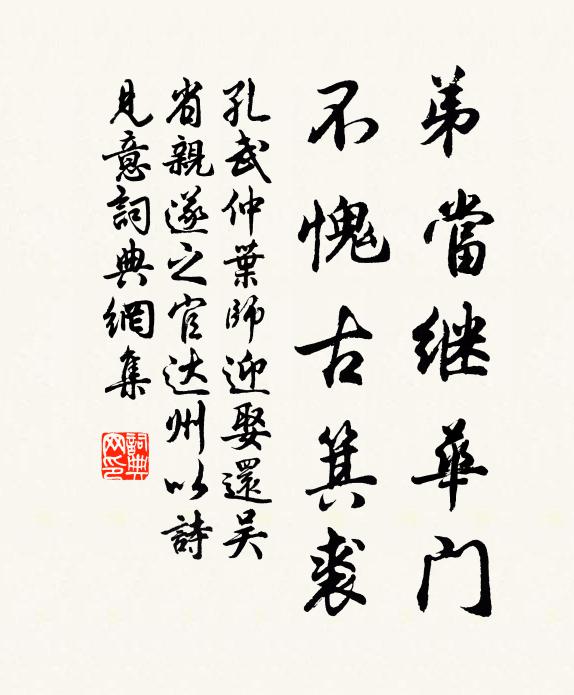 弟當继華門
不愧古箕裘
孔武仲葉師迎娶還吴
省親遂之官达州以詩
見意詞典網集
詞典网印